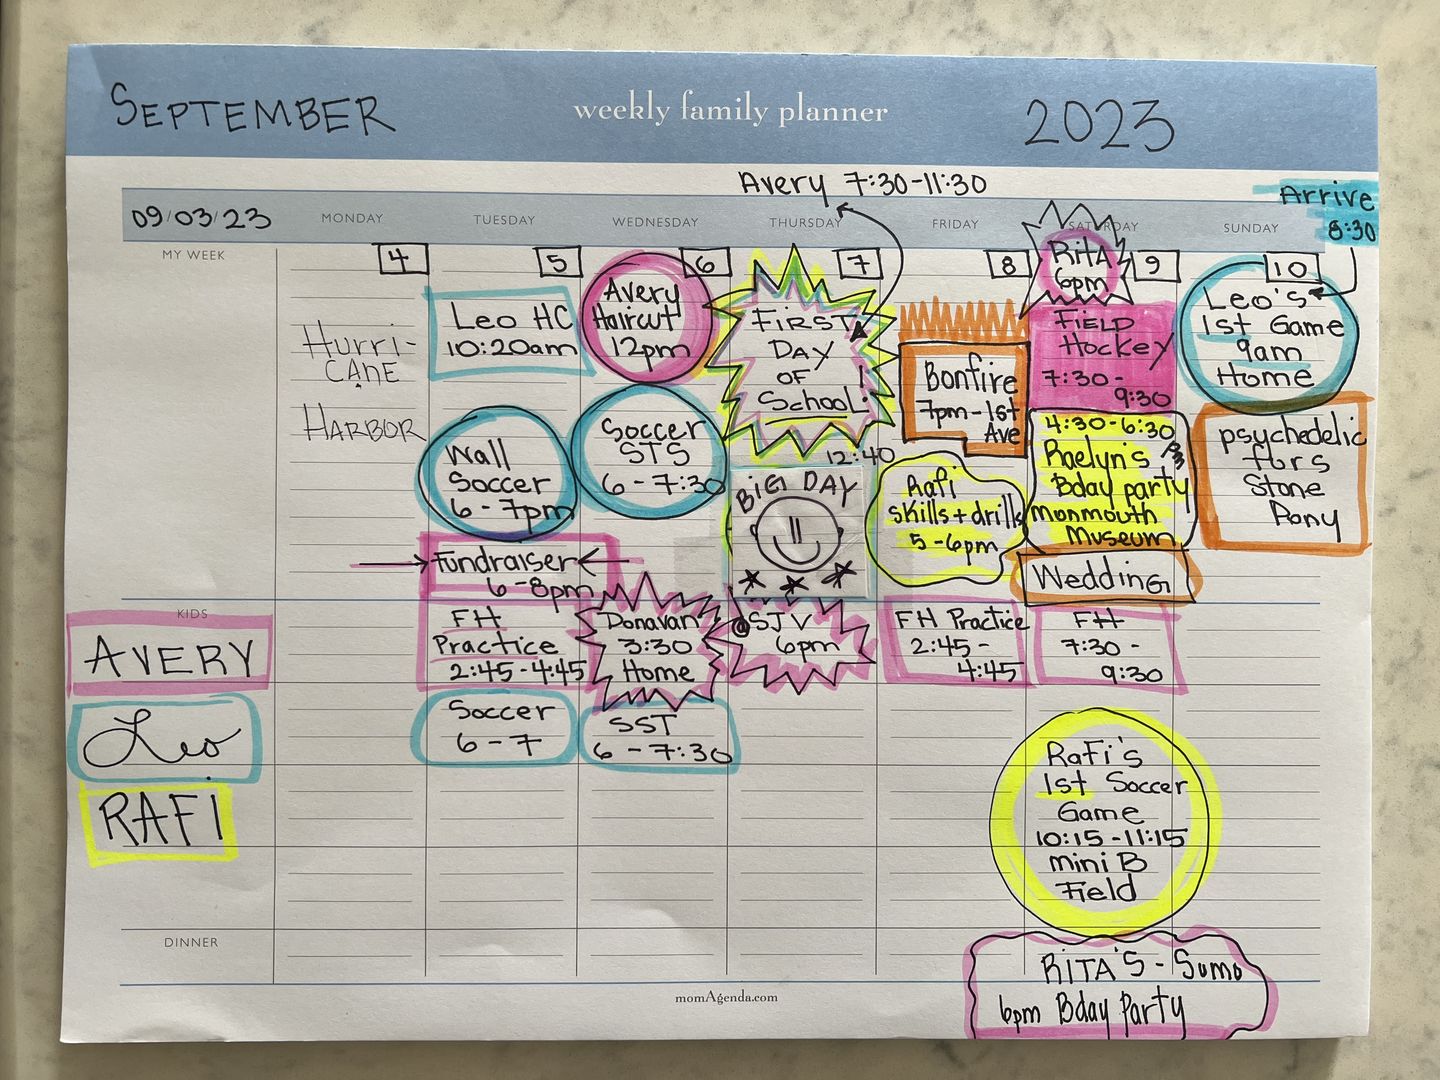 SEPTEMBER
weekly family planner
2023
Avery 7:30-11:30
Arrive
8:30
09/03/23
MONDAY
TUESDAY
WEDNESDAY
THURSDAY
FRIDAY
SATURDAY
SUNDAY
MY WEEK
4
Hurri-
CANE
HARBOR
5
Leo HC
10:20am
Wall
Soccer
6-7pm
Fundraiser
6-8pm
6
Avery
Haircut
12pm
Soccer
STS
6-7:30
7
FIRST
DAY
OF
School!
12:40
BIG DAY
8
Bonfire
7pm-1st
Ave
Rafi
skills+drills
5-6pm
9
RitA
6pm
FIELD
Hockey
7:30-
9:30
4:30-6:30
pm
Raelyn's
Bday party
monmouth
Museum
WeddinG
10
Leo's
1st Game
9am
Home
psychedelic
furs
Stone
Pony
KIDS
AVERY
FH
Practice
2:45-4:45
Donavan
3:30
Home
@SJV
6pm
FH Practice
2:45-
4:45
FH
7:30-
9:30
Leo
Soccer
6-7
SST
6-7:30
RAFI
RaFi's
1st Soccer
Game
10:15-11:15
mini B
Field
DINNER
RITA'S-Sumo
6pm Bday Party
momAgenda.com